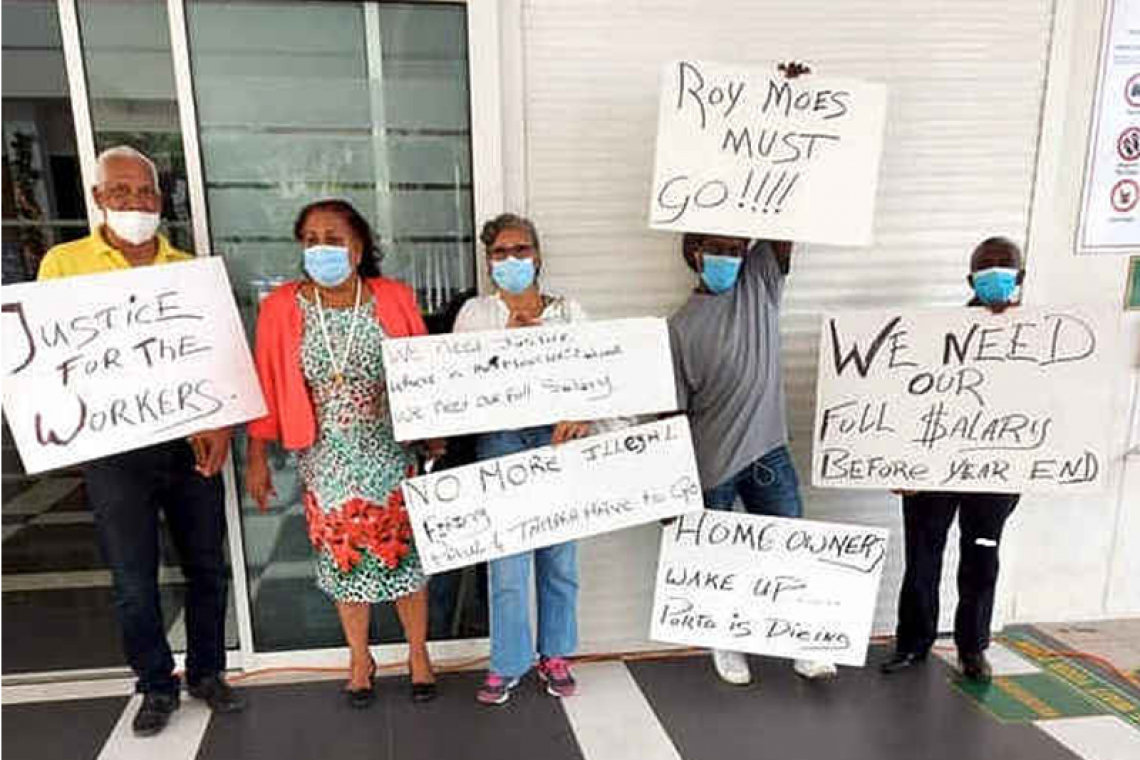 JUSTICE
FOR THE
WORKERS.
WE NEED
WE NEED OUR Full Salary
NO MORE ILLEgAL
Firing
& TAMARA HAVE to GO
ROY MOES
MUST
GO!!!!
HOMEOWNERS
WAKE UP.....
Porto is Dieing
WE NEED
OUR
FULL $ALARY
BEFORE YEAR END